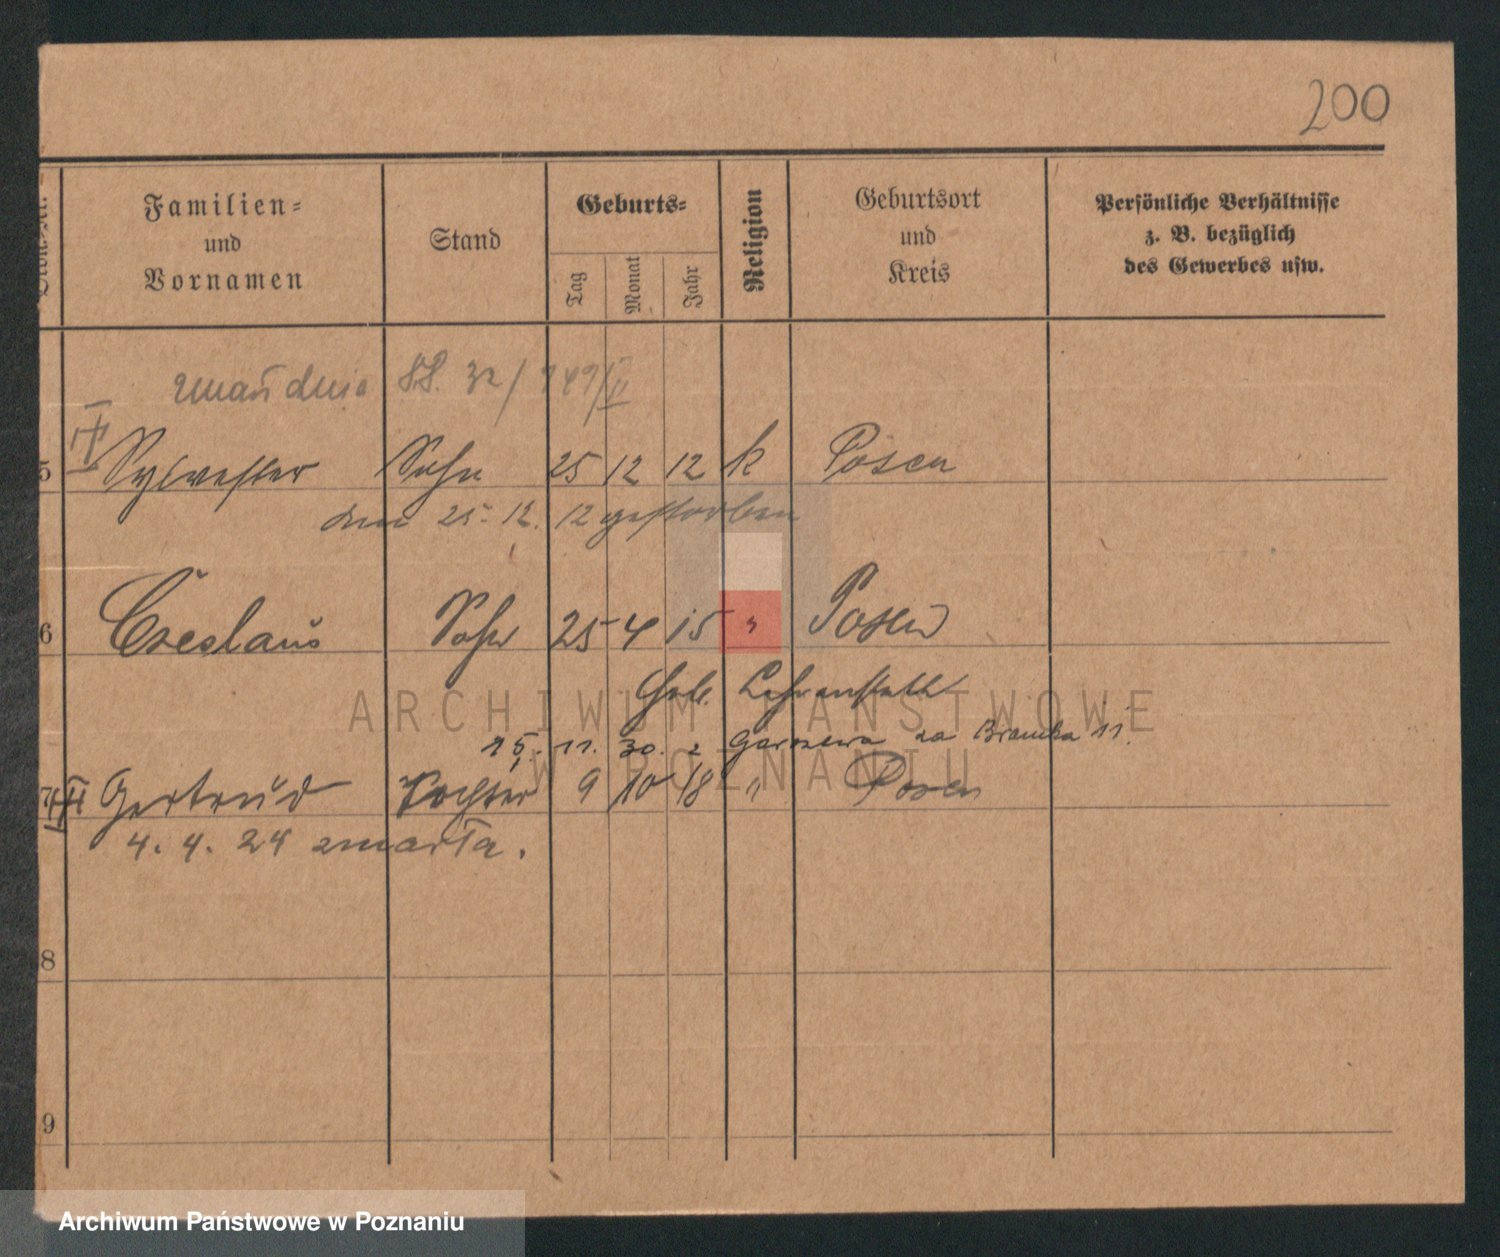 200
Familien= und Vornamen
Stand
Geburts=
Tag
Monat
Jahr
Religion
Geburtsort und Kreis
Persönliche Verhältnisse z. B. bezüglich des Gewerbes usw.
dnia 32/
5 Sylvester Sohn 25 12 12 k Posen
den 25. 12. 12 gestorben
6 Czeslaus Sohn 25 4 15 " Posen
Lehranstalt
ARCHIWUM PAŃSTWOWE
15. 11. 30. z za Bramka 11.
W POZNANIU
7 Gertrud Tochter 9 10 18 " Posen
4. 4. 24 zmarła.
8
9
Archiwum Państwowe w Poznaniu